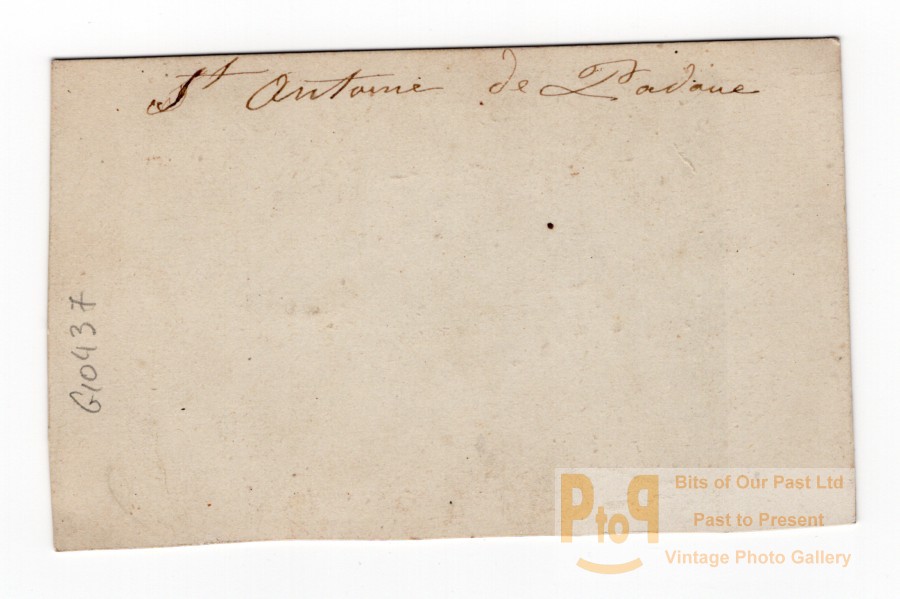 St Antoine de Padoue
G10437
PtoP
Bits of Our Past Ltd
Past to Present
Vintage Photo Gallery